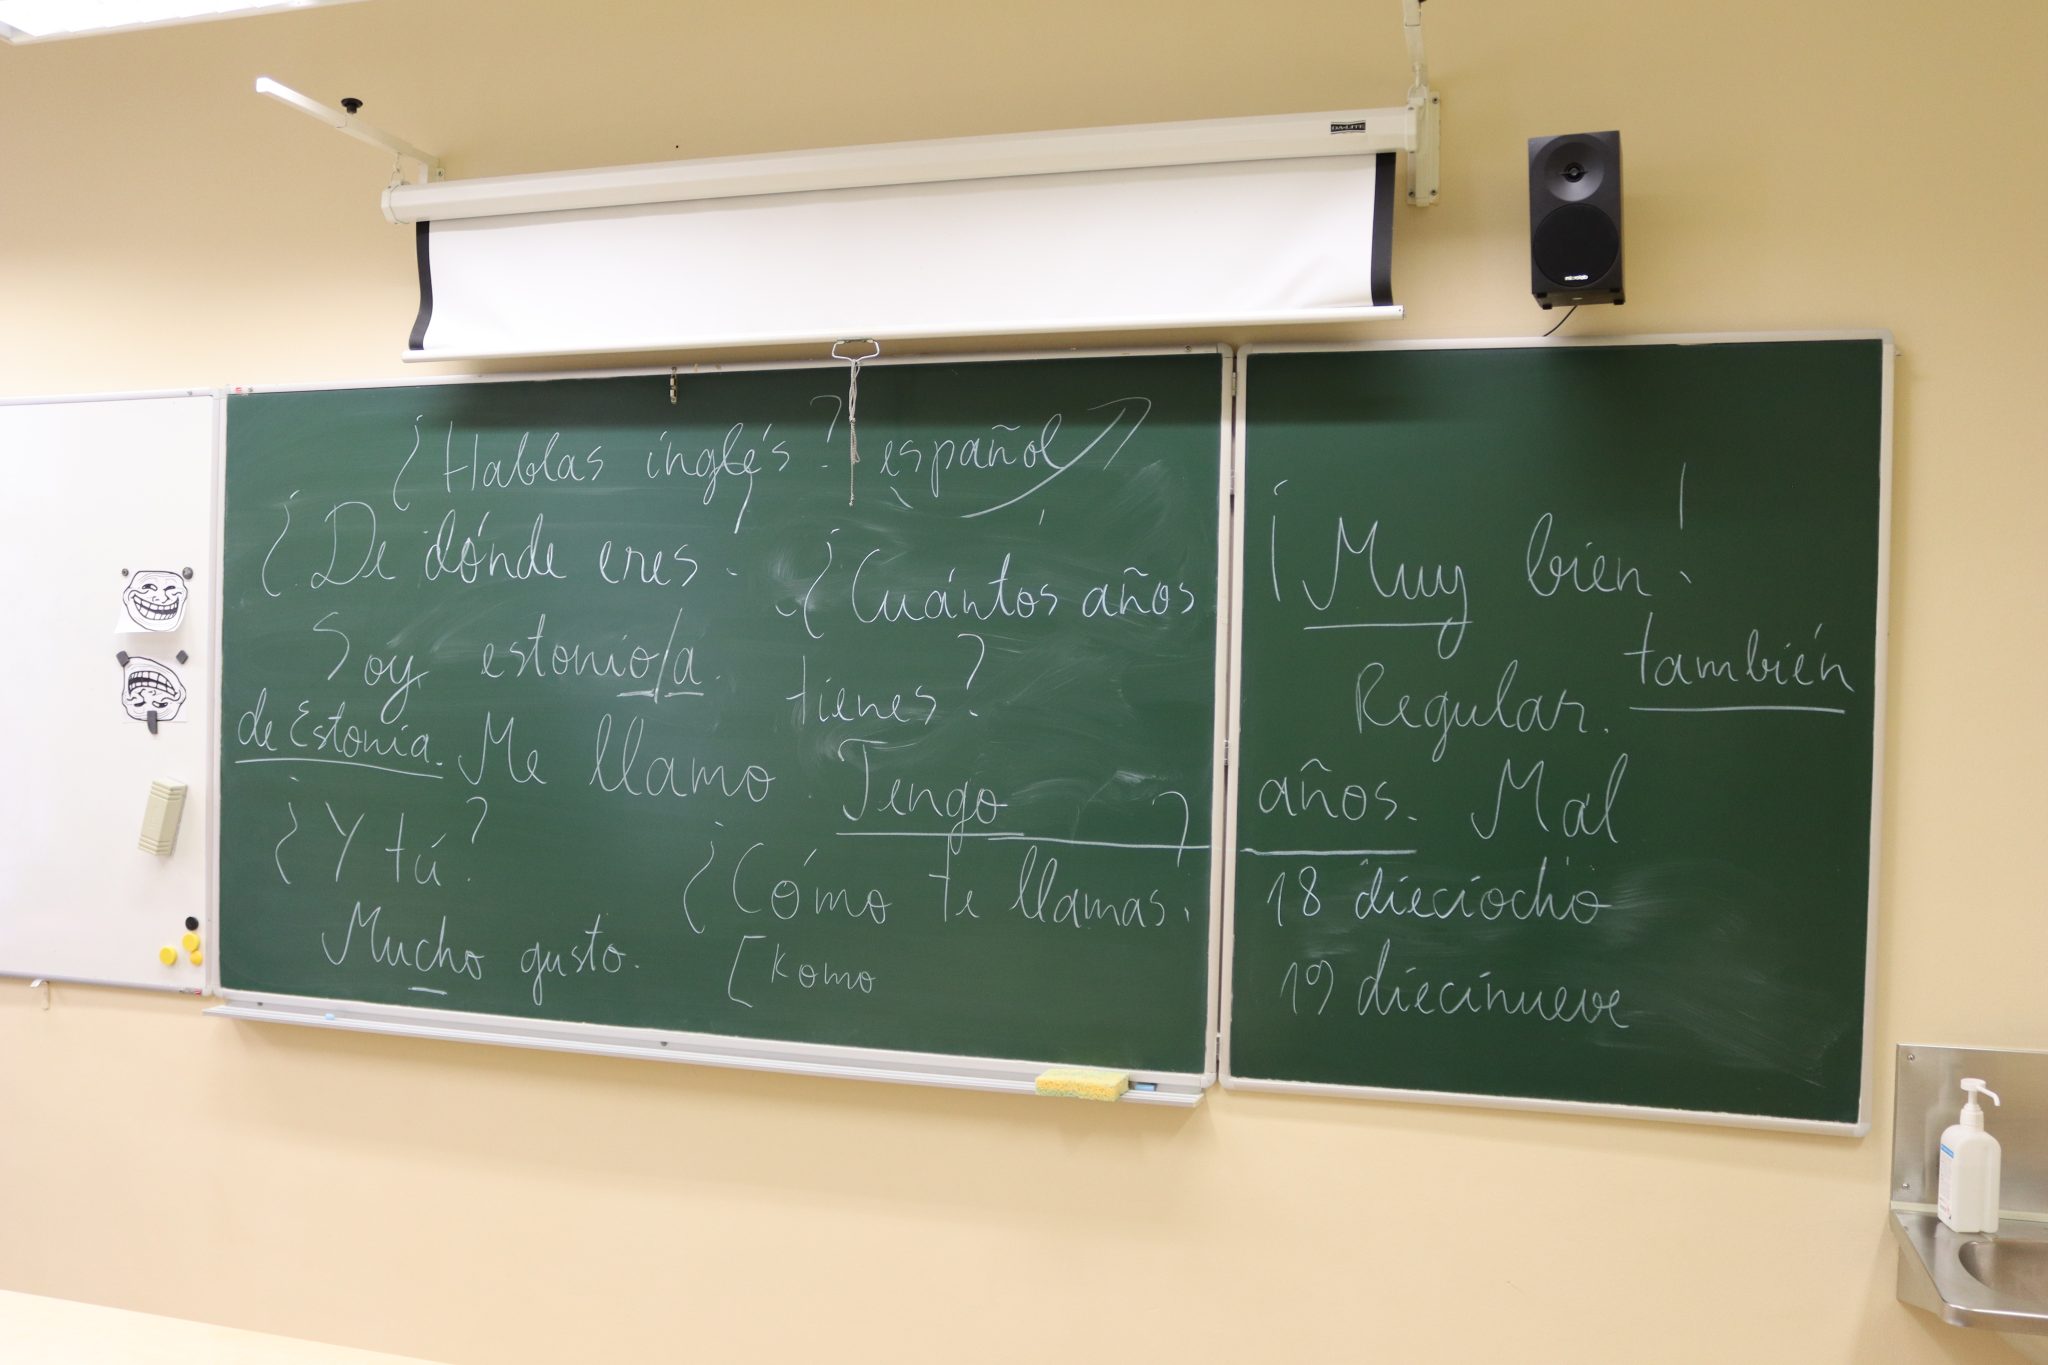 DA-LITE
microlab
¿Hablas inglés? español
¿De dónde eres?
¿Cuántos años
tienes?
Soy estonio/a.
de Estonia. Me llamo
Tengo ______ años.
¿Y tú?
¿Cómo te llamas?
Mucho gusto.
[komo
¡Muy bien!
también
Regular.
Mal
18 dieciocho
19 diecinueve